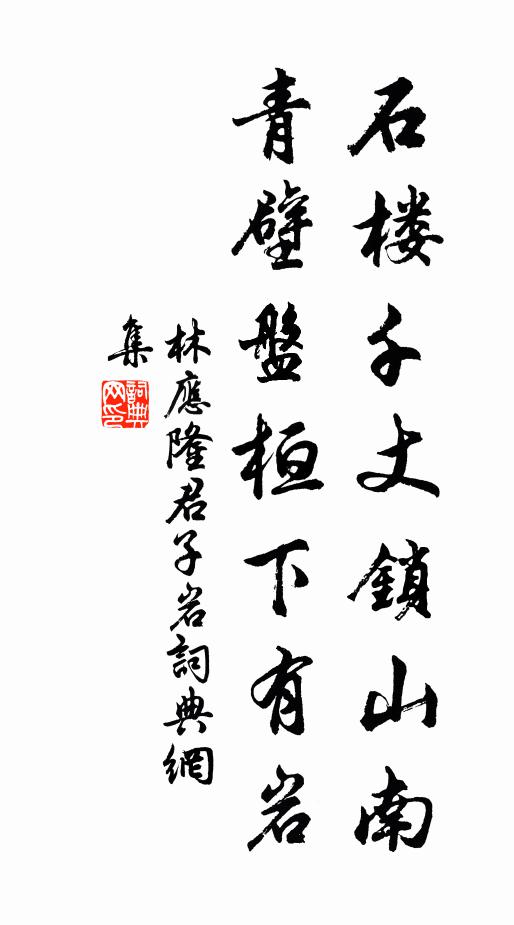 石楼千丈鎖山南
青壁盤桓下有岩
林應隆君子岩詞典網
集
詞典網印